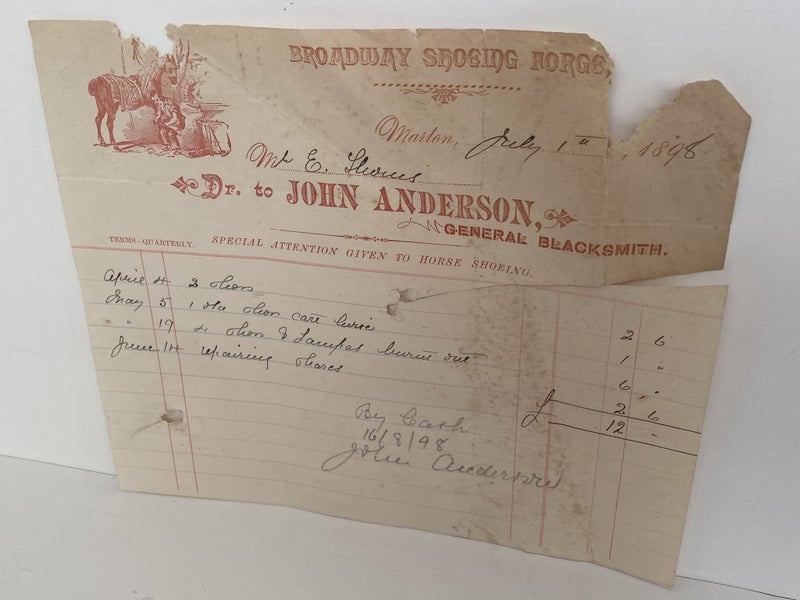 BROADWAY SHOEING FORGE,
Marton, July 1st, 1898
Mr E. Thoms
Dr. to JOHN ANDERSON,
GENERAL BLACKSMITH.
TERMS—QUARTERLY. SPECIAL ATTENTION GIVEN TO HORSE SHOEING.
April 4 2 shoes 2 6
May 5 1 old shoe cart horse 1 "
" 19 4 shoes & Lampas burnt out 6 "
June 14 repairing shares 2 6
£ 12 "
By Cash
16/8/98
John Anderson